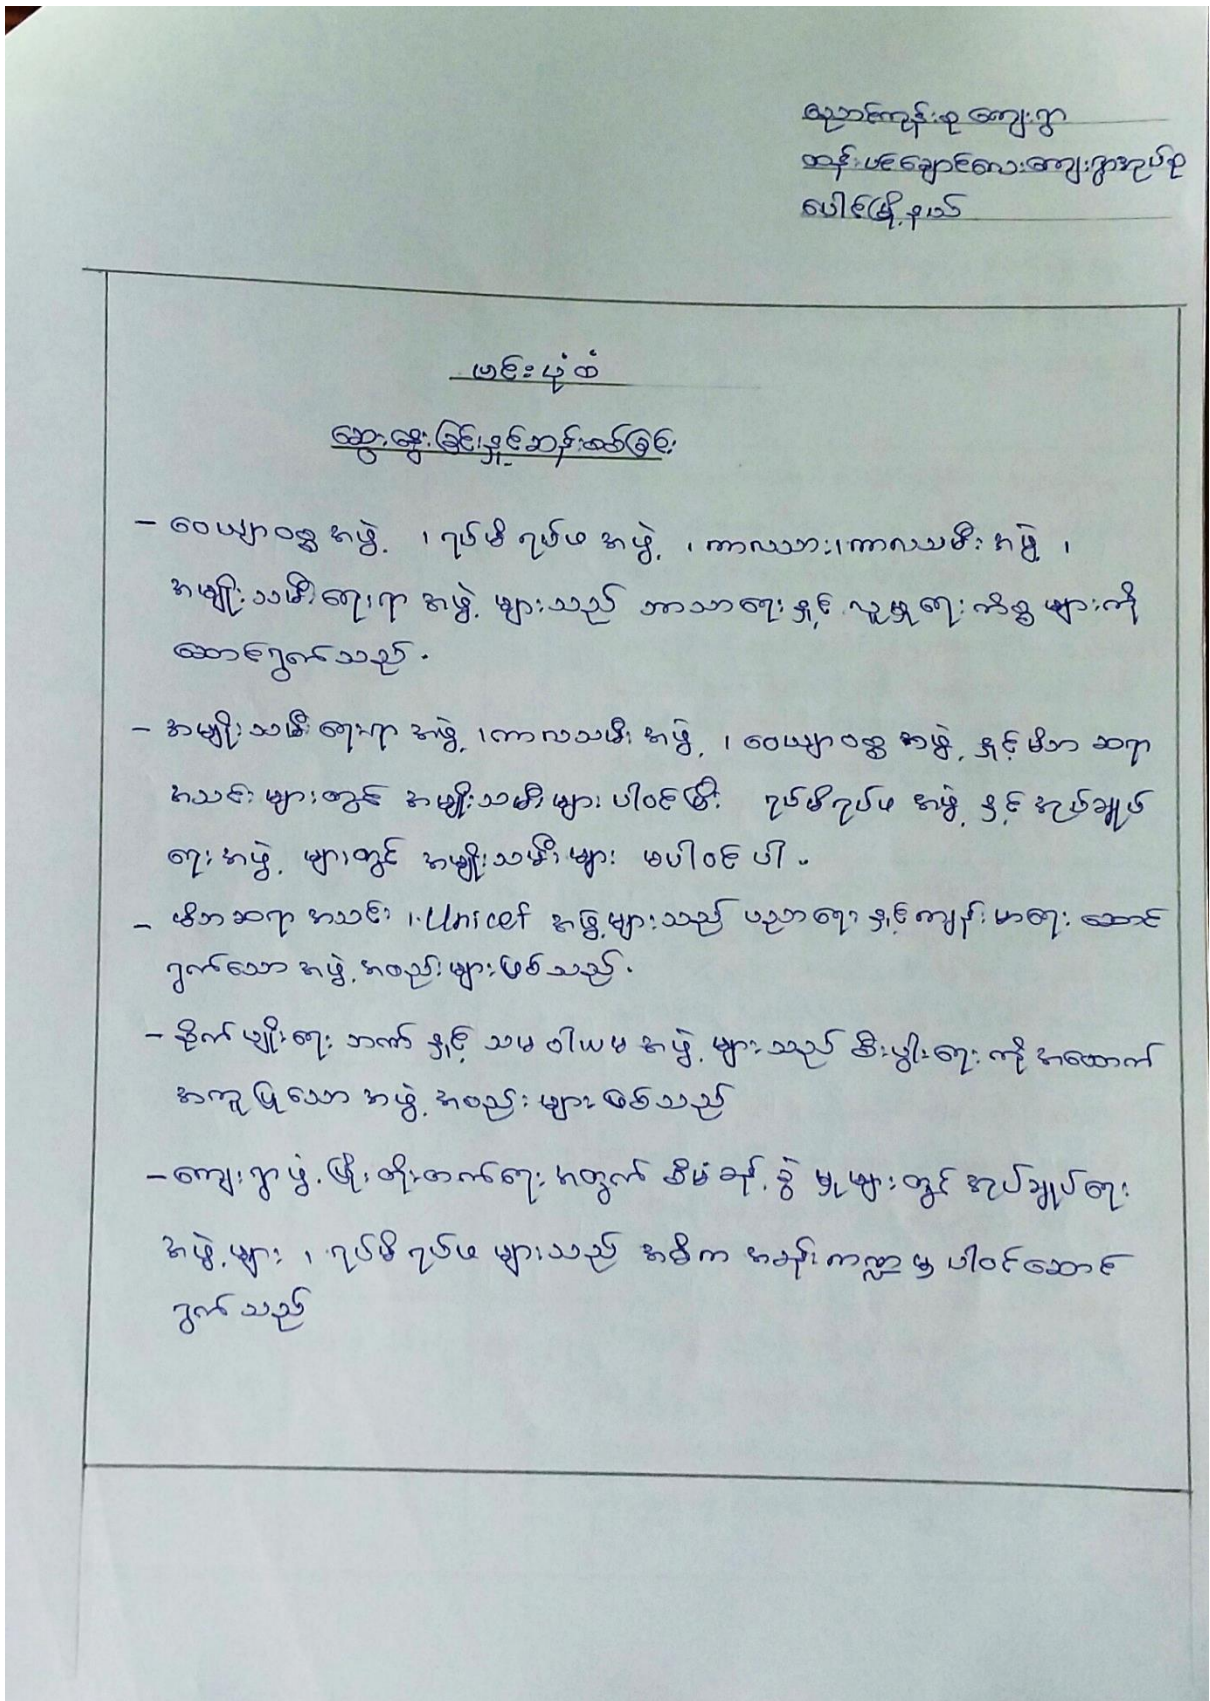 ညောင်ကုန်းစု ကျေးရွာ
ထန်းပင်ချောင်လေးကျေးရွာအုပ်စု
ပေါင်မြို့နယ်
ဗင်းပုံထံ
ဆွေးနွေးခြင်းနှင့်ဆန်းစစ်ခြင်း
- ဝေယျာဝစ္စအဖွဲ့ ၊ ရပ်မိရပ်ဖ အဖွဲ့ ၊ ကာလသား၊ကာလသမီး အဖွဲ့ ၊
အမျိုးသမီးရေးရာ အဖွဲ့ များသည် ဘာသာရေး နှင့် လူမှုရေး ကိစ္စ များကို
ဆောင်ရွက်သည်.
- အမျိုးသမီးရေးရာ အဖွဲ့ ၊ကာလသမီး အဖွဲ့ ၊ ဝေယျာဝစ္စ အဖွဲ့ နှင့် မိဘ ဆရာ
အသင်း များတွင် အမျိုးသမီးများ ပါဝင်ပြီး ရပ်မိရပ်ဖ အဖွဲ့ နှင့် အုပ်ချုပ်
ရေး အဖွဲ့ များတွင် အမျိုးသမီး များ မပါဝင် ပါ.
- မိဘဆရာ အသင်း ၊ Unicef အဖွဲ့များသည် ပညာရေး နှင့်ကျန်းမာရေး ဆောင်
ရွက်သော အဖွဲ့ အစည်း များ ဖြစ်သည်.
- စိုက်ပျိုးရေး ဘဏ် နှင့် သမဝါယမ အဖွဲ့ များသည် စီးပွါးရေး ကို အထောက်
အကူပြုသော အဖွဲ့ အစည်း များ ဖြစ်သည်
- ကျေးရွာဖွံ့ဖြိုးတိုးတက်ရေး အတွက် စီမံခန့်ခွဲ မှု များ တွင် အုပ်ချုပ်ရေး
အဖွဲ့များ ၊ ရပ်မိရပ်ဖ များသည် အဓိက အခန်းကဏ္ဍမှ ပါဝင်ဆောင်
ရွက်သည်